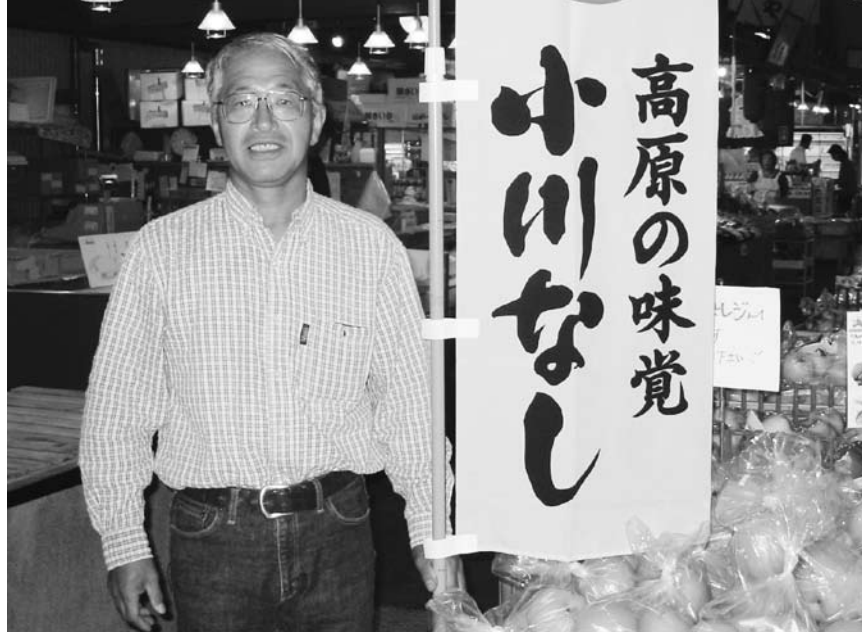 高原の味覚
小川なし